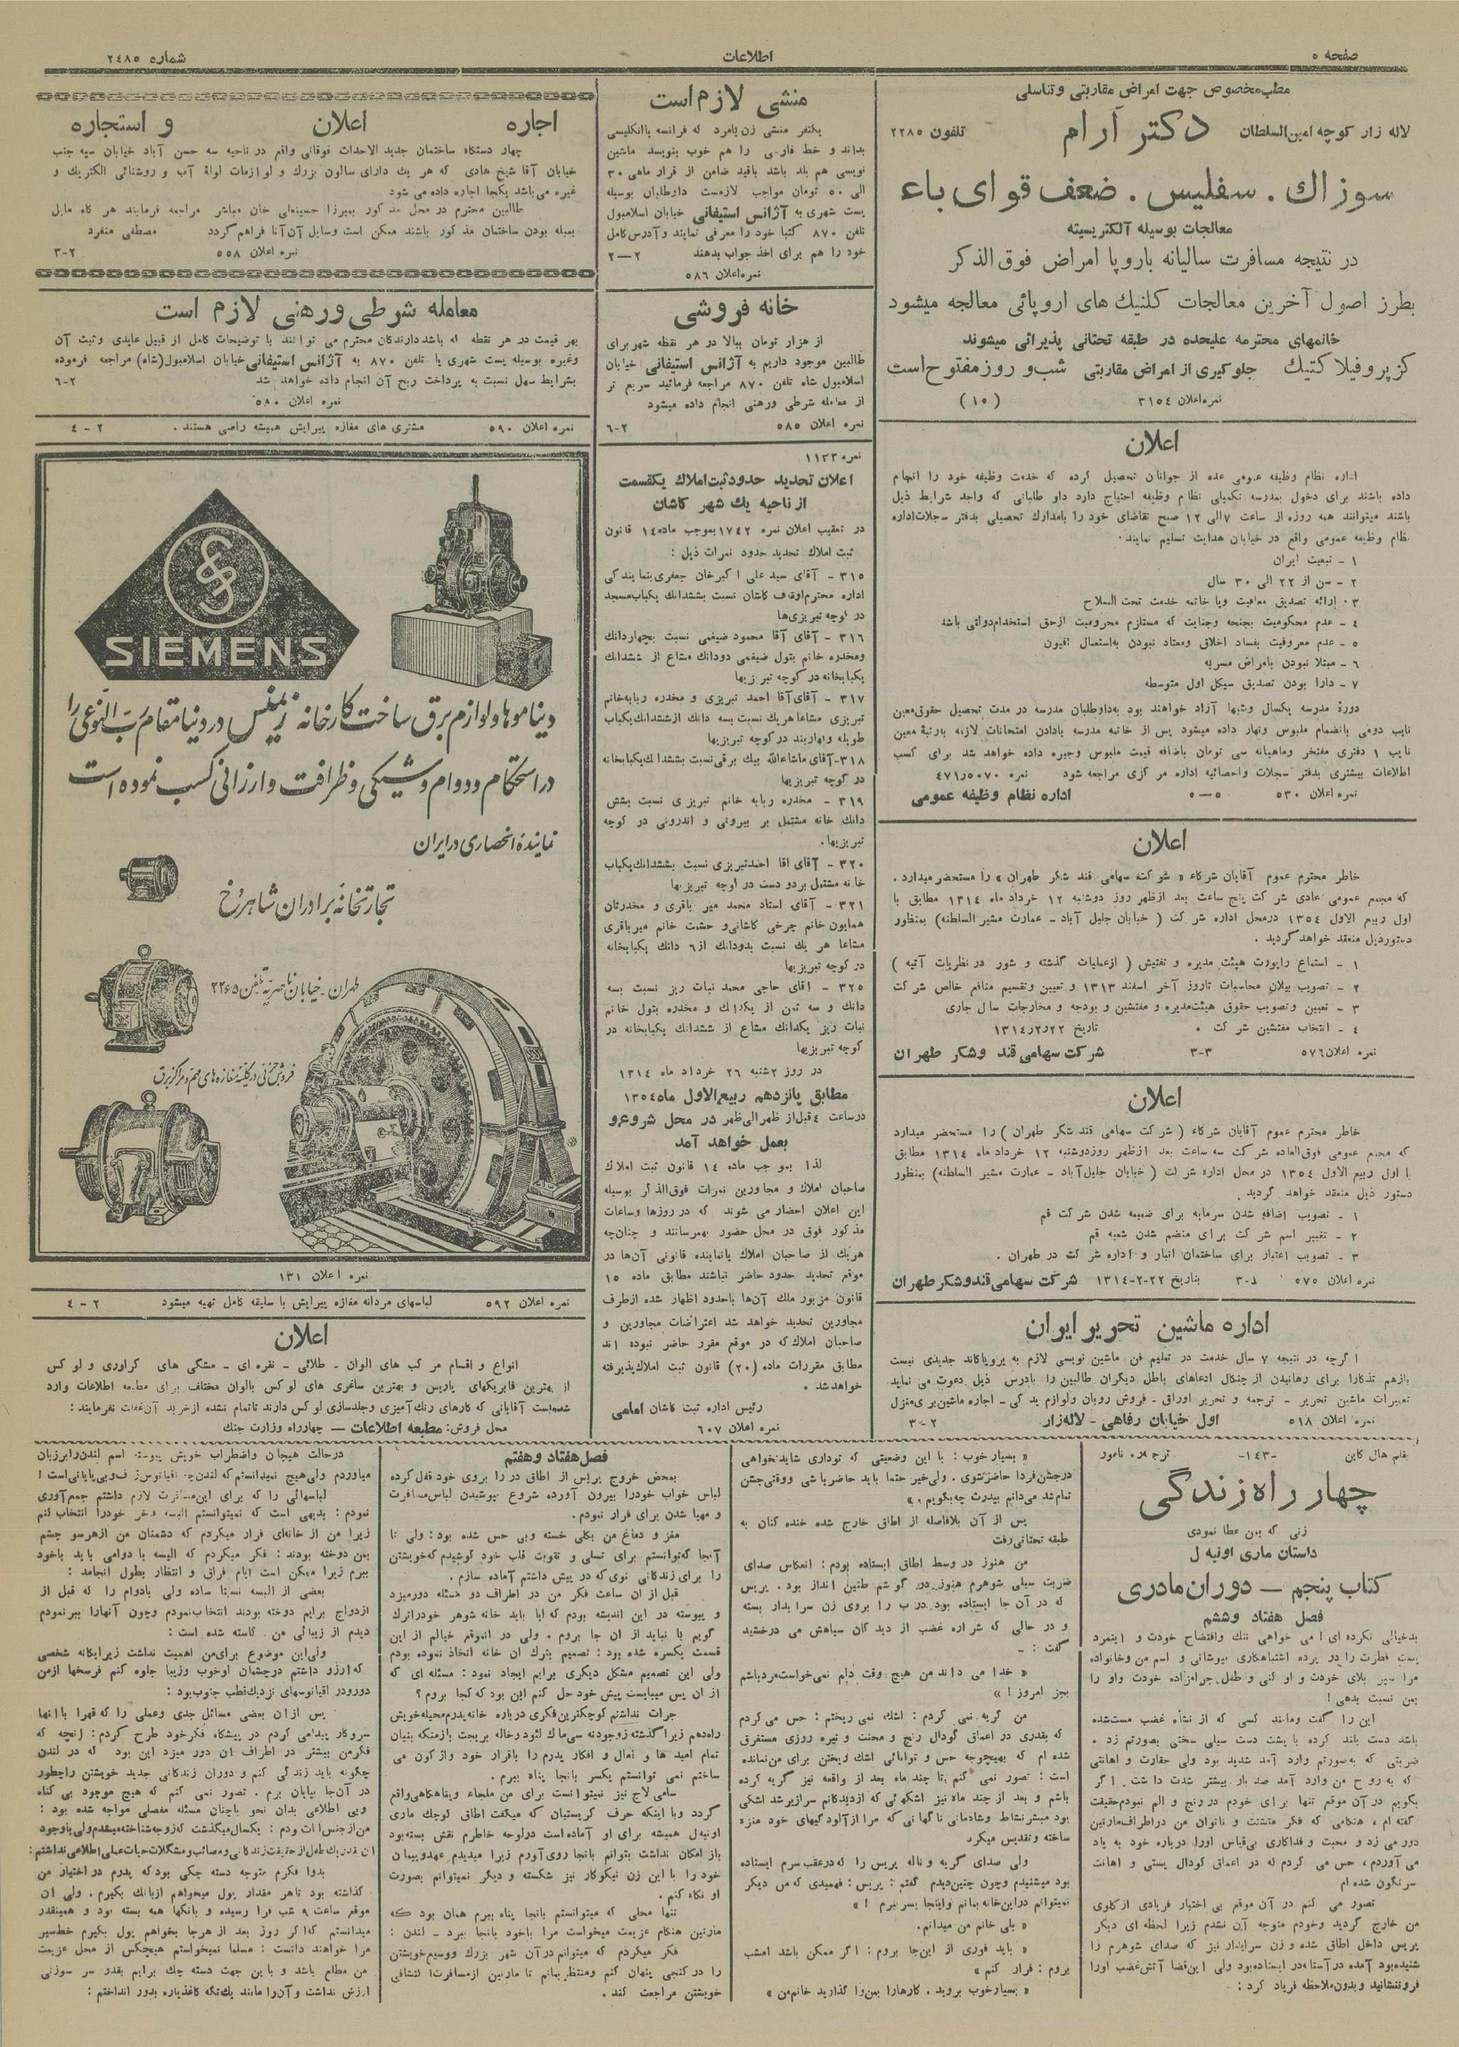 صفحه ٥
اطلاعات
شماره ٢٤٨٥
مطب مخصوص جهت امراض مقاربتی و تناسلی
لاله زار کوچه امین السلطان دکتر آرام تلفون ٢٢٨٥
سوزاك . سفلیس . ضعف قوای باء
معالجات بوسیله آلکتریسیته
در نتیجه مسافرت سالیانه باروپا امراض فوق الذکر
بطرز اصول آخرین معالجات کلنیك های اروپائی معالجه میشود
خانمهای محترمه علیحده در طبقه تحتانی پذیرائی میشوند
کز پروفیلاکتیك جلوگیری از امراض مقاربتی شب و روز مفتوح است
نمره اعلان ٣١٥٤ (١٥)
اعلان
اداره نظام وظیفه عمومی عده از جوانان تحصیل کرده که خدمت وظیفه خود را انجام
داده باشند برای دخول بمدرسه تکمیلی نظام وظیفه احتیاج دارد داو طلبانی که واجد شرایط ذیل
باشند میتوانند همه روزه از ساعت ٧ الی ١٢ صبح تقاضای خود را بامدارك تحصیلی بدفتر سجلات اداره
نظام وظیفه عمومی واقع در خیابان هدایت تسلیم نمایند.
١ - تبعیت ایران
٢ - سن از ٢٢ الی ٣٠ سال
٣ - ارائه تصدیق معافیت ویا خاتمه خدمت تحت السلاح
٤ - عدم محکومیت بجنحه وجنایت که مستلزم محرومیت ازحق استخدام دولتی باشد
٥ - عدم معروفیت بفساد اخلاق ومعتاد نبودن به استعمال افیون
٦ - مبتلا نبودن بامراض مسریه
٧ - دارا بودن تصدیق سیکل اول متوسطه
دوره مدرسه یکسال وشبها آزاد خواهند بود به داوطلبان مدرسه در مدت تحصیل حقوق معین
نایب دومی بانضمام ملبوس ونهار داده میشود پس از خاتمه مدرسه بادادن امتحانات لازمه بارتبه معین
نایب ١ دفتری مفتخر وماهیانه سی تومان باضافه قیمت ملبوس وجیره داده خواهد شد برای کسب
اطلاعات بیشتری بدفتر سجلات واحصائیه اداره مرکزی مراجعه شود
نمره اعلان ٥٣٠ ٥—٥ اداره نظام وظیفه عمومی
اعلان
خاطر محترم عموم آقایان شرکاء « شرکت سهامی قند شکر طهران » را مستحضر میدارد .
که مجمع عمومی عادی شرکت پنج ساعت بعد ازظهر روز دوشنبه ١٢ خرداد ماه ١٣١٤ مطابق با
اول ربیع الاول ١٣٥٤ درمحل اداره شرکت ( خیابان جلیل آباد - عمارت مشیر السلطنه) بمنظور
دستورذیل منعقد خواهد گردید .
١ - استماع راپورت هیئت مدیره و تفتیش ( ازعملیات گذشته و شور در نظریات آتیه )
٢ - تصویب بیلان محاسبات تاروز آخر اسفند ١٣١٣ و تعیین وتقسیم منافع خالص شرکت
٣ - تعیین وتصویب حقوق هیئت مدیره و مفتشین و بودجه و مخارجات سال جاری
٤ - انتخاب مفتشین شرکت . تاریخ ٢٢ر٢ر١٣١٤
نمره اعلان ٥٧٦ ٣-٣ شرکت سهامی قند وشکر طهران
اعلان
خاطر محترم عموم آقایان شرکاء ( شرکت سهامی قند شکر طهران ) را مستحضر میدارد
که مجمع عمومی فوق العاده شرکت سه ساعت بعد ازظهر روزدوشنبه ١٢ خرداد ماه ١٣١٤ مطابق
با اول ربیع الاول ١٣٥٤ در محل اداره شرکت ( خیابان جلیل آباد - عمارت مشیر السلطنه) بمنظور
دستور ذیل منعقد خواهد گردید .
١ - تصویب اضافه شدن سرمایه برای ضمیمه شدن شرکت قم
٢ - تغییر اسم شرکت برای منضم شدن شعبه قم
٣ - تصویب اعتبار برای ساختمان انبار و اداره شرکت در طهران .
نمره اعلان ٥٧٥ بتاریخ ٢٢-٢-١٣١٤ شرکت سهامی قند وشکر طهران
اداره ماشین تحریر ایران
اگرچه در نتیجه ٧ سال خدمت در تعلیم فن ماشین نویسی لازم به پروپاکاند جدیدی نیست
بازهم تذکارا برای رهانیدن از چنگال ادعاهای باطل دیگران طالبین را بادرس ذیل دعوت می نماید
تعمیرات ماشین تحریر - ترجمه و تحریر اوراق - فروش روبان ولوازم یدکی - اجاره ماشین برای منزل
نمره اعلان ٥١٨ اول خیابان رفاهی - لاله زار ٢-٣
منشی لازم است
یکنفر منشی زن یا مرد که فرانسه یا انگلیسی
بداند و خط فارسی را هم خوب بنویسد ماشین
نویسی هم بلد باشد باقید ضامن از قرار ماهی ٣٠
الی ٥٠ تومان مواجب لازمست داوطلبان بوسیله
پست شهری به آژانس استیفانی خیابان اسلامبول
تلفن ٨٧٠ کتبا خود را معرفی نمایند وآدرس کامل
خود را هم برای اخذ جواب بدهند ٢—٢
نمره اعلان ٥٨٦
خانه فروشی
از هزار تومان ببالا در هر نقطه شهر برای
طالبین موجود داریم به آژانس استیفانی خیابان
اسلامبول شاه تلفن ٨٧٠ مراجعه فرمائید سریع تر
از معامله شرطی ورهنی انجام داده میشود
نمره اعلان ٥٨٥ ٢-٦
نمره ١١٢٣
اعلان تحدید حدود ثبت املاك یکقسمت
از ناحیه یك شهر کاشان
در تعقیب اعلان نمره ١٧٤٢ بموجب ماده ١٤ قانون
ثبت املاك تحدید حدود نمرات ذیل :
٣١٥ - آقای سید علی اکبرخان جعفری بنمایندگی
اداره محترم اوقاف کاشان نسبت بششدانك یکباب مسجد
در کوچه تبریزی ها
٣١٦ - آقای آقا محمود ضیغمی نسبت بچهاردانك
ومخدره خانم بتول ضیغمی دودانك مشاع از ششدانك
یکبابخانه در کوچه تبریزیها
٣١٧ - آقای آقا احمد تبریزی و مخدره ربابه خانم
تبریزی مشاعا هریك نسبت بسه دانك ازششدانك یکباب
طویله وبهاربند در کوچه تبریزیها
٣١٨ - آقای ماشاءالله بیك برقی نسبت بششدانك یکبابخانه
در کوچه تبریزیها
٣١٩ - مخدره ربابه خانم تبریزی نسبت بشش
دانك خانه مشتمل بر بیرونی و اندرونی در کوچه
تبریزیها .
٣٢٠ - آقای آقا احمد تبریزی نسبت بششدانك یکباب
خانه مشتمل بردو دست در کوچه تبریزیها
٣٢١ - آقای استاد محمد میر باقری و مخدرتان
همایون خانم چرخی کاشانی و حشمت خانم میرباقری
مشاعا هر یك نسبت بدودانك از ٦ دانك یکبابخانه
در کوچه تبریزیها
٣٢٥ - آقای حاجی محمد نبات ریز نسبت بسه
دانك و سه ثمن از یکدانك و مخدره بتول خانم
نبات ریز یکدانك مشاع از ششدانك یکبابخانه در
کوچه تبریزیها
در روز ٢ شنبه ٢٦ خرداد ماه ١٣١٤
مطابق پانزدهم ربیع الاول ماه ١٣٥٤
درساعت ٤ قبل از ظهر الی ظهر در محل شروع و
بعمل خواهد آمد
لذا بموجب ماده ١٤ قانون ثبت املاك
صاحبان املاك و مجاورین نمرات فوق الذکر بوسیله
این اعلان احضار می شوند که در روزها وساعات
مذکور فوق در محل حضور بهمرسانند و چنانچه
هریك از صاحبان املاك یا نماینده قانونی آن ها در
موقع تحدید حدود حاضر نباشند مطابق ماده ١٥
قانون مزبور ملك آن ها باحدود اظهار شده ازطرف
مجاورین تحدید خواهد شد اعتراضات مجاورین و
صاحبان املاك که در موقع مقرر حاضر نبوده اند
مطابق مقررات ماده (٢٠) قانون ثبت املاك پذیرفته
خواهد شد .
رئیس اداره ثبت کاشان امامی
نمره اعلان ٦٠٧
اجاره اعلان و استجاره
چهار دستگاه ساختمان جدید الاحداث فوقانی واقع در ناحیه سه حسن آباد خیابان سپه جنب
خیابان آقا شیخ هادی که هر یك دارای سالون بزرك و لوازمات لوله آب و روشنائی الکتریك و
غیره می باشد یکجا اجاره داده می شود
طالبین محترم در محل مذکور بمیرزا حسینعلی خان مباشر مراجعه فرمایند هر گاه مایل
بمبله بودن ساختمان مذکور باشند ممکن است وسایل آن آنا فراهم گردد مصطفی منفرد
نمره اعلان ٥٥٨ ٢-٣
معامله شرطی ورهنی لازم است
بهر قیمت در هر نقطه که باشد دارندگان محترم می توانند با توضیحات کامل از قبیل عایدی وثبت آن
وغیره بوسیله پست شهری یا تلفن ٨٧٠ به آژانس استیفانی خیابان اسلامبول (شاه) مراجعه فرموده
بشرایط سهل نسبت به پرداخت ربح آن انجام داده خواهد شد ٢-٦
نمره اعلان ٥٨٠
نمره اعلان ٥٩٠ مشتری های مغازه پیرایش همیشه راضی هستند . ٢ - ٤
SIEMENS
دینامها و لوازم برق ساخت کارخانه زیمنس در دنیا مقام رب النوعی را
در استحکام و دوام و شیکی و ظرافت و ارزانی کسب نموده است
نماینده انحصاری در ایران
تجارتخانه برادران شاهرخ
طهران - خیابان ناصریه تلفن ٢٢٦٥
فروش جزئی در کلیه مغازه های مهم و مراکز برق
نمره اعلان ١٣١
نمره اعلان ٥٩٢ لباسهای مردانه مغازه پیرایش با سلیقه کامل تهیه میشود ٢ - ٤
اعلان
انواع و اقسام مرکب های الوان - طلائی - نقره ای - مشکی های کراوری و لوکس
از بهترین فابریکهای پاریس و بهترین ساغری های لوکس بالوان مختلف برای مطبعه اطلاعات وارد
شده است آقایانی که کارهای رنگ آمیزی وجلدسازی لوکس دارند تاتمام نشده ازخرید آن غفلت نفرمایند :
محل فروش: مطبعه اطلاعات - چهارراه وزارت جنك
بقلم هال کاین -١٤٣- ترجمه نامور
چهار راه زندگی
زنی که بمن عطا نمودی
داستان ماری اونیه ل
کتاب پنجم - دوران مادری
فصل هفتاد وششم
بدخیالی نکرده ای ! می خواهی ننك وافتضاح خودت و اینمرد
پست فطرت را در پرده اشتباهکاری بپوشانی و اسم من وخانواده
مرا سپر بلای خودت و او کنی و طفل حرامزاده خودت واو را
بمن نسبت بدهی !
این را گفت ومانند کسی که از نشأه غضب مست شده
باشد دست بلند کرده با پشت دست سیلی سختی بصورتم زد .
ضربتی که به صورتم وارد آمد شدید بود ولی حقارت و اهانتی
که به روح من وارد آمد صد بار بیشتر شدت داشت . اگر
بگویم در آن موقع تنها برای خودم در رنج و الم نبودم حقیقت
گفته ام ، هنگامی که فکر متشتت و ناتوان من دراطراف مارتین
دور می زد و محبت و فداکاری بی قیاس اورا درباره خود به یاد
می آوردم ، حس می کردم که در اعماق گودال پستی و اهانت
سرنگون شده ام
تصور می کنم در آن موقع بی اختیار فریادی ازگلوی
من خارج گردید وخودم متوجه آن نشدم زیرا لحظه ای دیگر
پریس داخل اطاق شده و زن سرایدار نیز که صدای شوهرم را
شنیده بود آمده در آستانه در ایستاده بود ولی این قضا آتش غضب اورا
فرونشانید وبدون ملاحظه فریاد کرد :
« بسیار خوب : با این وضعیتی که توداری شاید نخواهی
درجشن فردا حاضرشوی . ولی خیر حتما باید حاضر باشی ووقتی جشن
تمام شد می دانم بپدرت چه بگویم »
پس از آن بلافاصله از اطاق خارج شده خنده کنان به
طبقه تحتانی رفت
من هنوز در وسط اطاق ایستاده بودم : انعکاس صدای
ضربت سیلی شوهرم هنوز در گوشم طنین انداز بود . پریس
که در آن جا ایستاده بود درب را بروی زن سرایدار بسته
و در حالی که شراره غضب از دیدگان سیاهش می درخشید
گفت : -
« خدا می داند من هیچ وقت دلم نمی خواست مرد باشم
بجز امروز ! »
من گریه نمی کردم : اشك نمی ریختم : حس می کردم
که بقدری در اعماق گودال رنج و محنت و تیره روزی مستغرق
شده ام که بهیچوجه حس و توانائی اشك ریختن برای من نمانده
است : تصور نمی کنم تا چند ماه بعد از واقعه نیز گریه کرده
باشم و بعد از چند ماه نیز اشکهائی که ازدیدگانم سرازیر شد اشکی
بود مبشرنشاط وشادمانی ناگهانی که مرا ازآلودگیهای خود منزه
ساخته و تقدیس میکرد
ولی صدای گریه و ناله پریس را که درعقب سرم ایستاده
بود میشنیدم وچون چنین دیدم گفتم : پریس : فهمیدی که من دیگر
نمیتوانم دراین خانه بمانم واینجا بسر ببرم ! »
« بلی خانم من میدانم .
« باید فوری از این جا بروم : اگر ممکن باشد امشب
بروم : فرار کنم »
« بسیار خوب بروید . کارها را بمن وا گذارید خانم من »
فصل هفتاد وهفتم
بمحض خروج پریس از اطاق در را بروی خود قفل کرده
لباس خواب خودرا بیرون آورده شروع بپوشیدن لباس مسافرت
و مهیا شدن برای فرار نمودم .
مغز و دماغ من بکلی خسته وبی حس شده بود : ولی تا
آنجا که توانستم برای تسلی و تقویت قلب خود کوشیدم که خویشتن
را برای زندگانی نوی که در پیش داشتم آماده سازم .
قبل از آن ساعت فکر من در اطراف دو مسئله دور میزد
و پیوسته در این اندیشه بودم که آیا باید خانه شوهر خودراترك
گویم یا نباید از آن جا بروم . ولی در آنموقع خیالم از این
قسمت یکسره شده بود : تصمیم بترك آن خانه اتخاذ نموده بودم
ولی این تصمیم مشکل دیگری برایم ایجاد نمود : مسئله ای که
از آن پس میبایست پیش خود حل کنم این بود که کجا بروم ؟
جرات نداشتم کوچکترین فکری درباره خانه پدرم بمخیله خویش
راه دهم
تمام امیدها و آمال و افکار پدرم را باقرار خود واژگون می
ساختم نمی توانستم یکسر بانجا پناه ببرم .
سامی لاج نیز نمیتوانست برای من ملجاء وپناهگاهی واقع
گردد وبا اینکه حرف کریستیان که میگفت اطاق کوچك ماری
اونیه ل همیشه برای او آماده است درلوحه خاطرم نقش بسته بود
باز امکان نداشت بتوانم بانجا روی آورم زیرا میدیدم عهد و پیمان
خود را با این زن نیکوکار نیز شکسته و دیگر نمیتوانم بصورت
او نگاه کنم .
تنها محلی که میتوانستم بانجا پناه ببرم همان بود که
مارتین هنگام عزیمت میخواست مرا باخود بانجا ببرد - لندن :
فکر میکردم که میتوانم در آن شهر بزرك ووسیع خویشتن
را در کنجی پنهان کنم ومنتظر بمانم تا مارتین ازمسافرت اکتشافی
خویشتن مراجعت کند .
درحالت هیجان واضطراب خویش پیوسته اسم لندن رابرزبان
میاوردم ولی هیچ نمیدانستم که لندن چه اقیانوس ژرف وبی پایانی است !
لباسهائی را که برای این مسافرت لازم داشتم جمع آوری
نمودم : بدیهی است که نمیتوانستم البسه فاخر خودرا انتخاب کنم
زیرا من از خانه ای فرار میکردم که دشمنان من ازهرسو چشم
بمن دوخته بودند : فکر میکردم که البسه با دوامی باید باخود
ببرم زیرا ممکن است ایام فراق و انتظار بطول انجامد :
بعضی از البسه نسبتا ساده ولی بادوام را که قبل از
ازدواج برایم دوخته بودند انتخاب نمودم وچون آنهارا ببر نمودم
دیدم از زیبائی من کاسته شده است :
ولی این موضوع برای من اهمیت نداشت زیرا یگانه شخصی
که آرزو داشتم درچشمان اوخوب وزیبا جلوه کنم فرسخها ازمن
دورو در اقیانوسهای نزدیك قطب جنوب بود :
پس ازآن بعضی مسائل جدی وعملی را که قهرا با آنها
سروکار پیدا می کردم در پیشگاه فکرخود طرح کردم : آنچه که
فکر من بیشتر در اطراف آن دور میزد این بود که در لندن
چگونه باید زندگی کنم و دوران زندگانی جدید خویشتن راچطور
در آن جا بپایان برم . تصور نمی کنم که هیچ موجود بی گناه
وبی اطلاعی بدان نحو باچنان مسئله مفصلی مواجه شده بود :
بدوا فکرم متوجه دسته چکی بود که پدرم در اختیار من
گذاشته بود تاهر مقدار پول میخواهم ازبانك بگیرم . ولی آن
موقع ساعت ٩ شب فرا رسیده و بانکها همه بسته بود و همینقدر
میدانستم که اگر روز بعد از هرجا بخواهم پول بگیرم خط سیر
مرا خواهند دانست : مسلما نمیخواستم هیچکس از محل عزیمت
من مطلع باشد و باین جهت دسته چك برایم بقدر سر سوزنی
ارزش نداشت و آن را مانند یك تکه کاغذ پاره بدور انداختم :